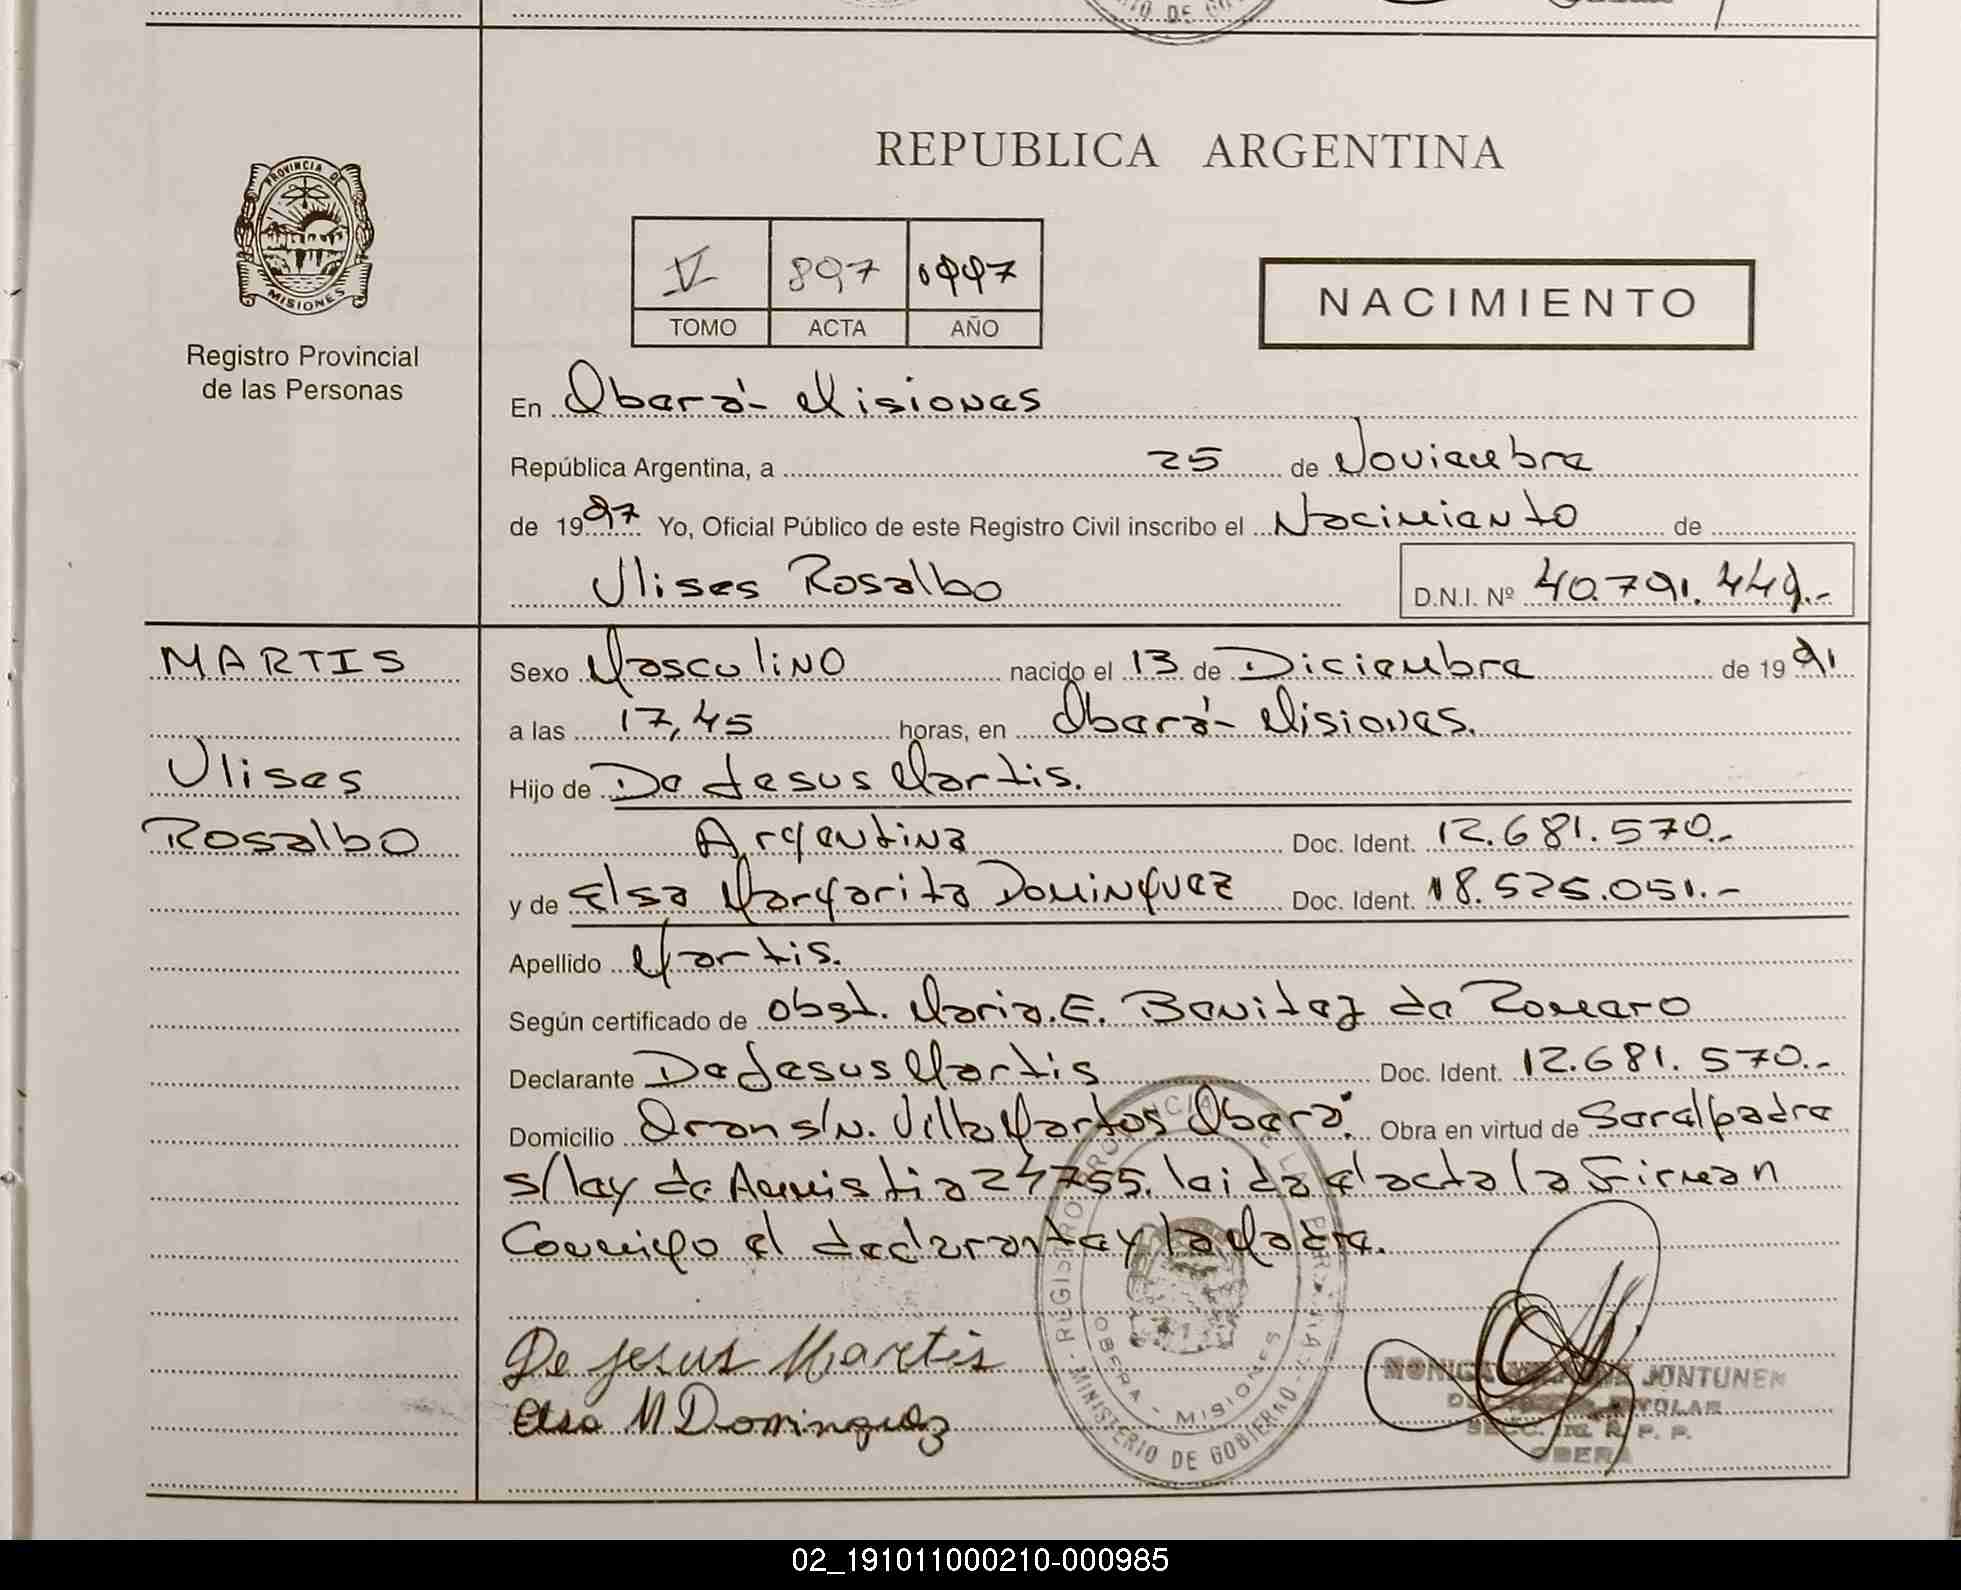 RIO DE GO
REPUBLICA ARGENTINA
PROVINCIA DE
MISIONES
Registro Provincial
de las Personas
V 897 1997
TOMO ACTA AÑO
NACIMIENTO
En Oberá- Misiones
República Argentina, a 25 de Noviembre
de 1997 Yo, Oficial Público de este Registro Civil inscribo el Nacimiento de
Ulises Rosalbo D.N.I. Nº 40.791.449.-
MARTIS
Ulises
Rosalbo
Sexo Masculino nacido el 13 de Diciembre de 1991
a las 17,45 horas, en Oberá- Misiones.
Hijo de De Jesus Martis.
Argentina Doc. Ident. 12.681.570.-
y de Elsa Margarita Dominguez Doc. Ident. 18.525.051.-
Apellido Martis.
Según certificado de obst. Maria.E. Benitez de Romero
Declarante De Jesus Martis Doc. Ident. 12.681.570.-
Domicilio Oran s/n. Villa Martos Oberá. Obra en virtud de Ser el padre
s/ley de Amnistia 24755. leida el acta la Firman
Conmigo el declarante y la Madre.
De Jesus Martis
Elsa M Dominguez
REGISTRO PROVINCIAL DE LAS PERSONAS
OBERA - MISIONES
MINISTERIO DE GOBIERNO
MONICA JUNTUNEN
TITULAR
SECC. R. P. P.
OBERA
02_191011000210-000985